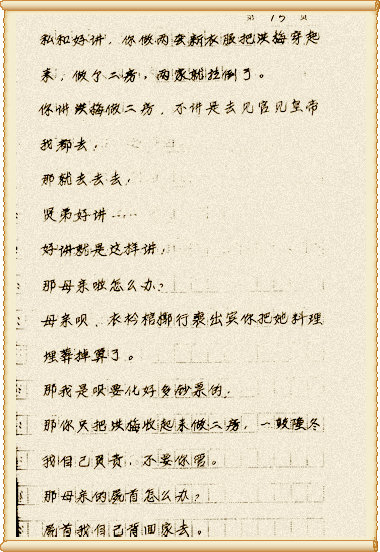 第 15 页
私和好讲，你做两套新衣服把洪梅穿起
来，做个二房，两家就拉倒了。
你讲洪梅做二房，不讲是去见官见皇帝
我都去！
那就去去去！
贤弟好讲……
好讲就是这样讲！
那母亲啦怎么办？
母亲呗、衣衿棺椁行丧出宾你把她料理
埋葬掉算了。
那我是呗要化好多钞票的！
那你只把洪梅收起来做二房，一
我自己负责，不要你管。
那母亲的尸首怎么办？
尸首我自己背回家去。